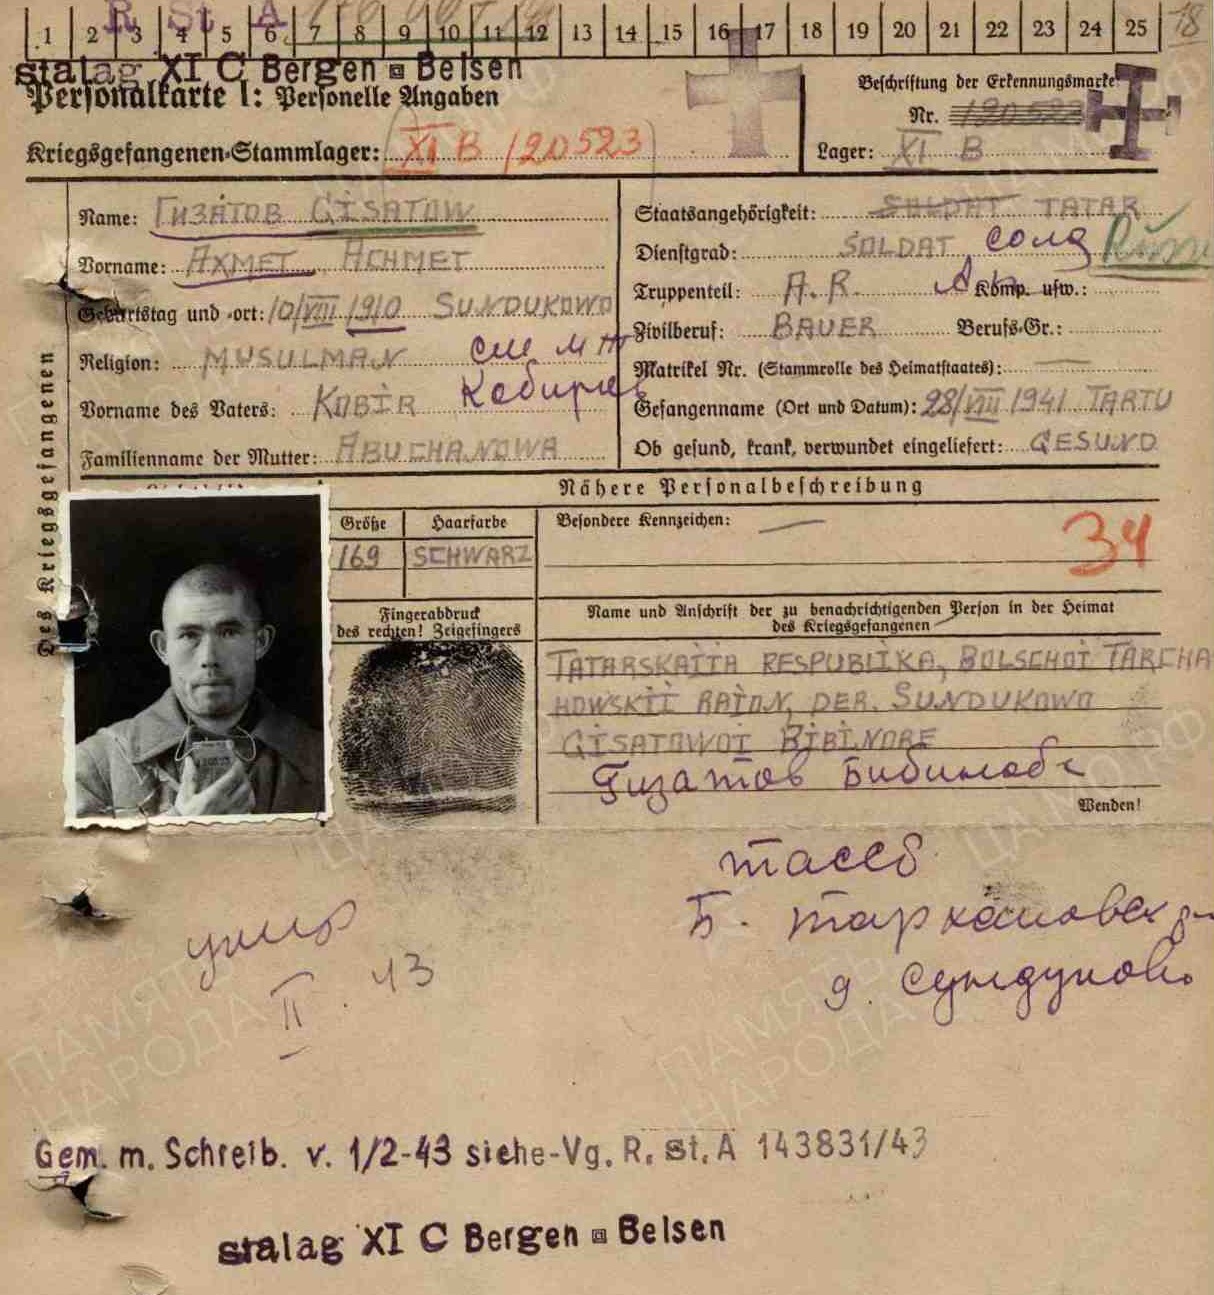 1 2 3 4 5 6 7 8 9 10 11 12 13 14 15 16 17 18 19 20 21 22 23 24 25 18
R St A
stalag XI C Bergen Belsen
Personalkarte I: Personelle Angaben
Beschriftung der Erkennungsmarke
Nr. 120523
Kriegsgefangenen-Stammlager: XI B 120523
Lager: XI B
Name: Гизатов GISATOW
Staatsangehörigkeit: SOLDAT TATAR
Vorname: АХМЕТ ACHMET
Dienstgrad: SOLDAT солд
Geburtstag und -ort: 10/VIII 1910 SUNDUKOWO
Truppenteil: A.R. Komp. usw.:
Religion: MUSULMAN
Zivilberuf: BAUER Berufs-Gr.:
Matrikel Nr. (Stammrolle des Heimatstaates): —
Vorname des Vaters: KABIR
Gefangenname (Ort und Datum): 28/VIII 1941 TARTU
Familienname der Mutter: ABUCHANOWA
Ob gesund, krank, verwundet eingeliefert: GESUND
Des Kriegsgefangenen
Nähere Personalbeschreibung
Größe Haarfarbe
Besondere Kennzeichen: —
169 SCHWARZ
34
Fingerabdruck
des rechten! Zeigefingers
Name und Anschrift der zu benachrichtigenden Person in der Heimat
des Kriegsgefangenen
TATARSKAITA RESPUBLIKA, BOLSCHOI TARCHA
NOWSKII RAION, DER. SUNDUKOWO
GISATOWOI BIBINORE
Гизатов
Wenden!
тасср
Б. Тархановск р-н
д. Сундуково
умер
II. 43
Gem. m. Schreib. v. 1/2-43 siehe-Vg. R. St. A 143831/43
stalag XI C Bergen Belsen
ПАМЯТЬ
НАРОДА
ПАМЯТЬ
НАРОДА